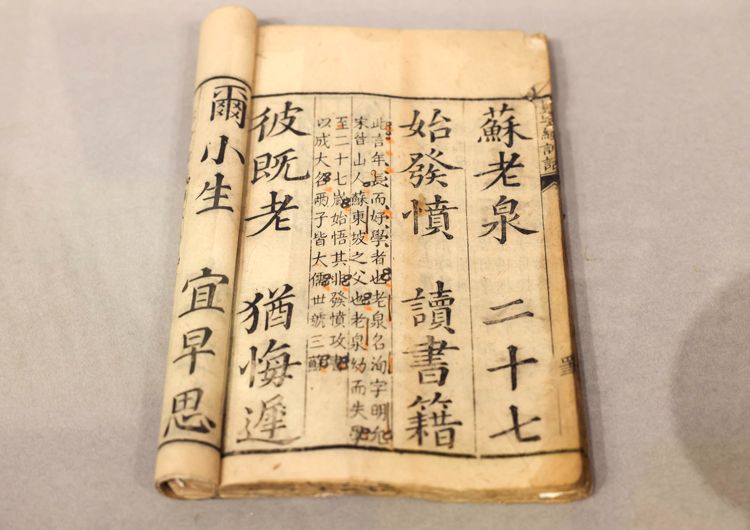 蘇老泉 二十七
始發憤 讀書籍
此言年長而好學者也老泉名洵字明允
宋眉山人蘇東坡之父也老泉幼而失學
至二十七歲始悟其非發憤攻書
以成大名兩子皆大儒世號三蘇
彼既老 猶悔遲
爾小生 宜早思